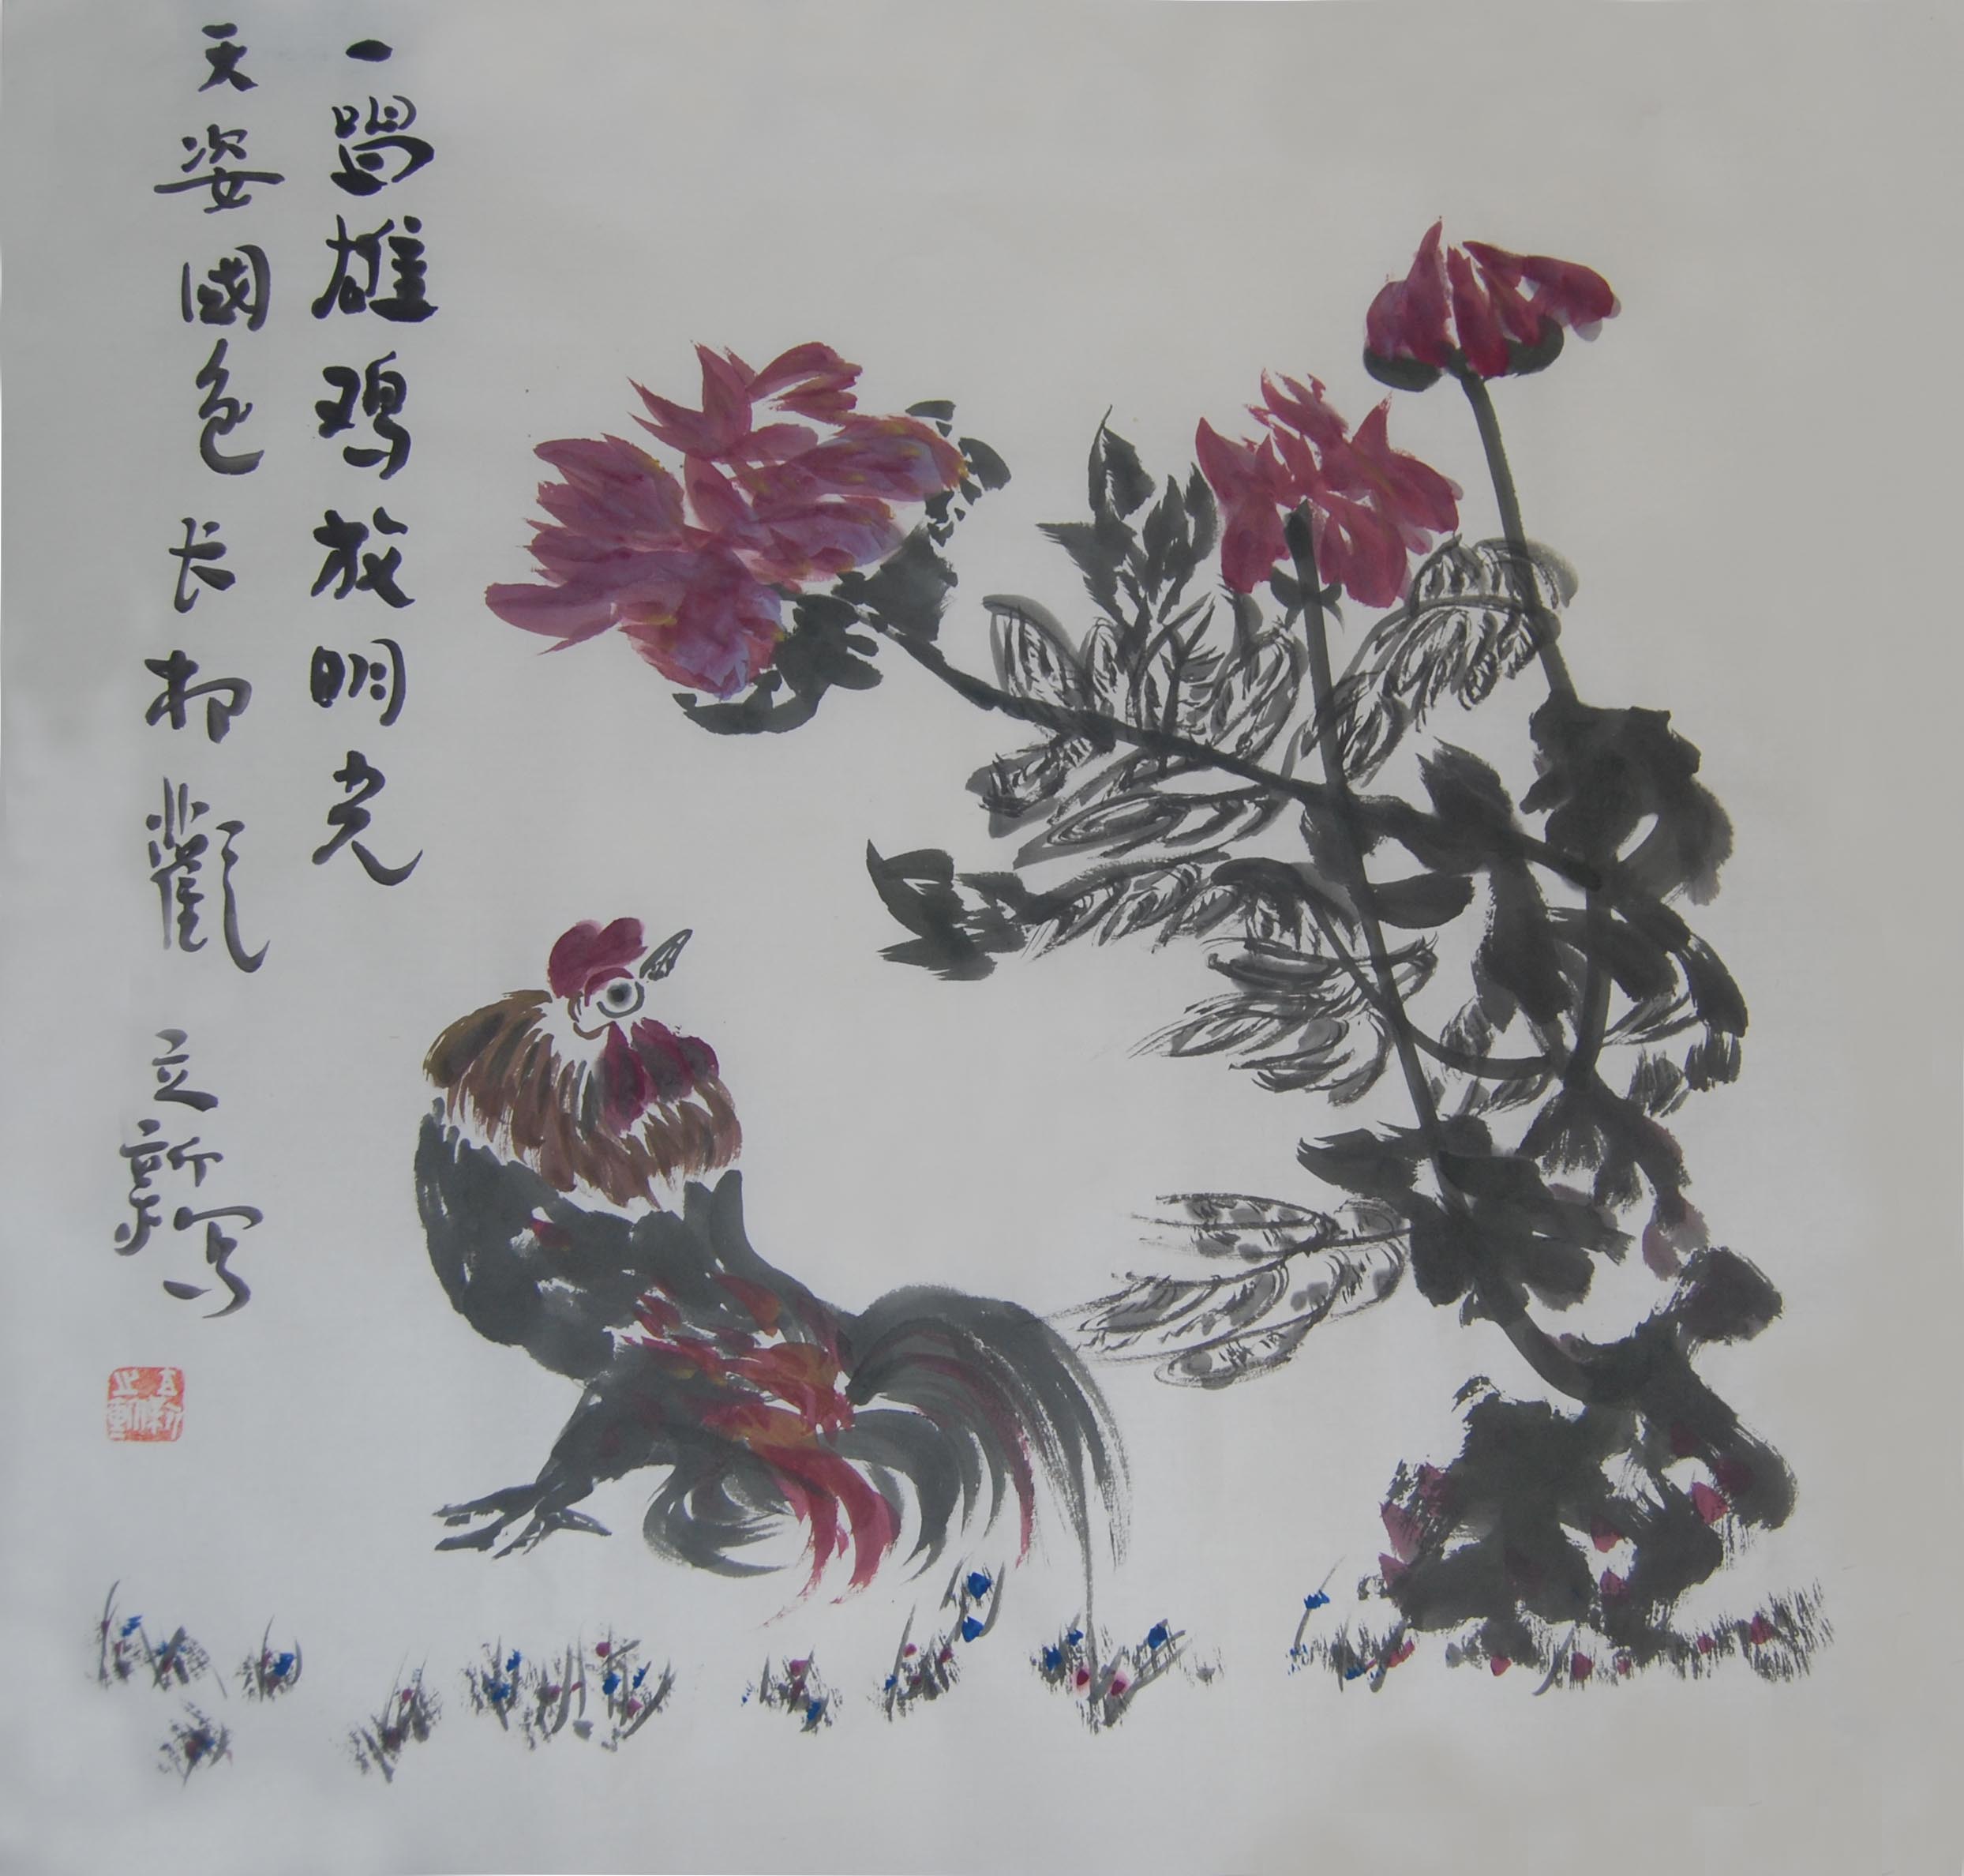 一唱雄鸡放明光
天姿國色长相觀 立新写